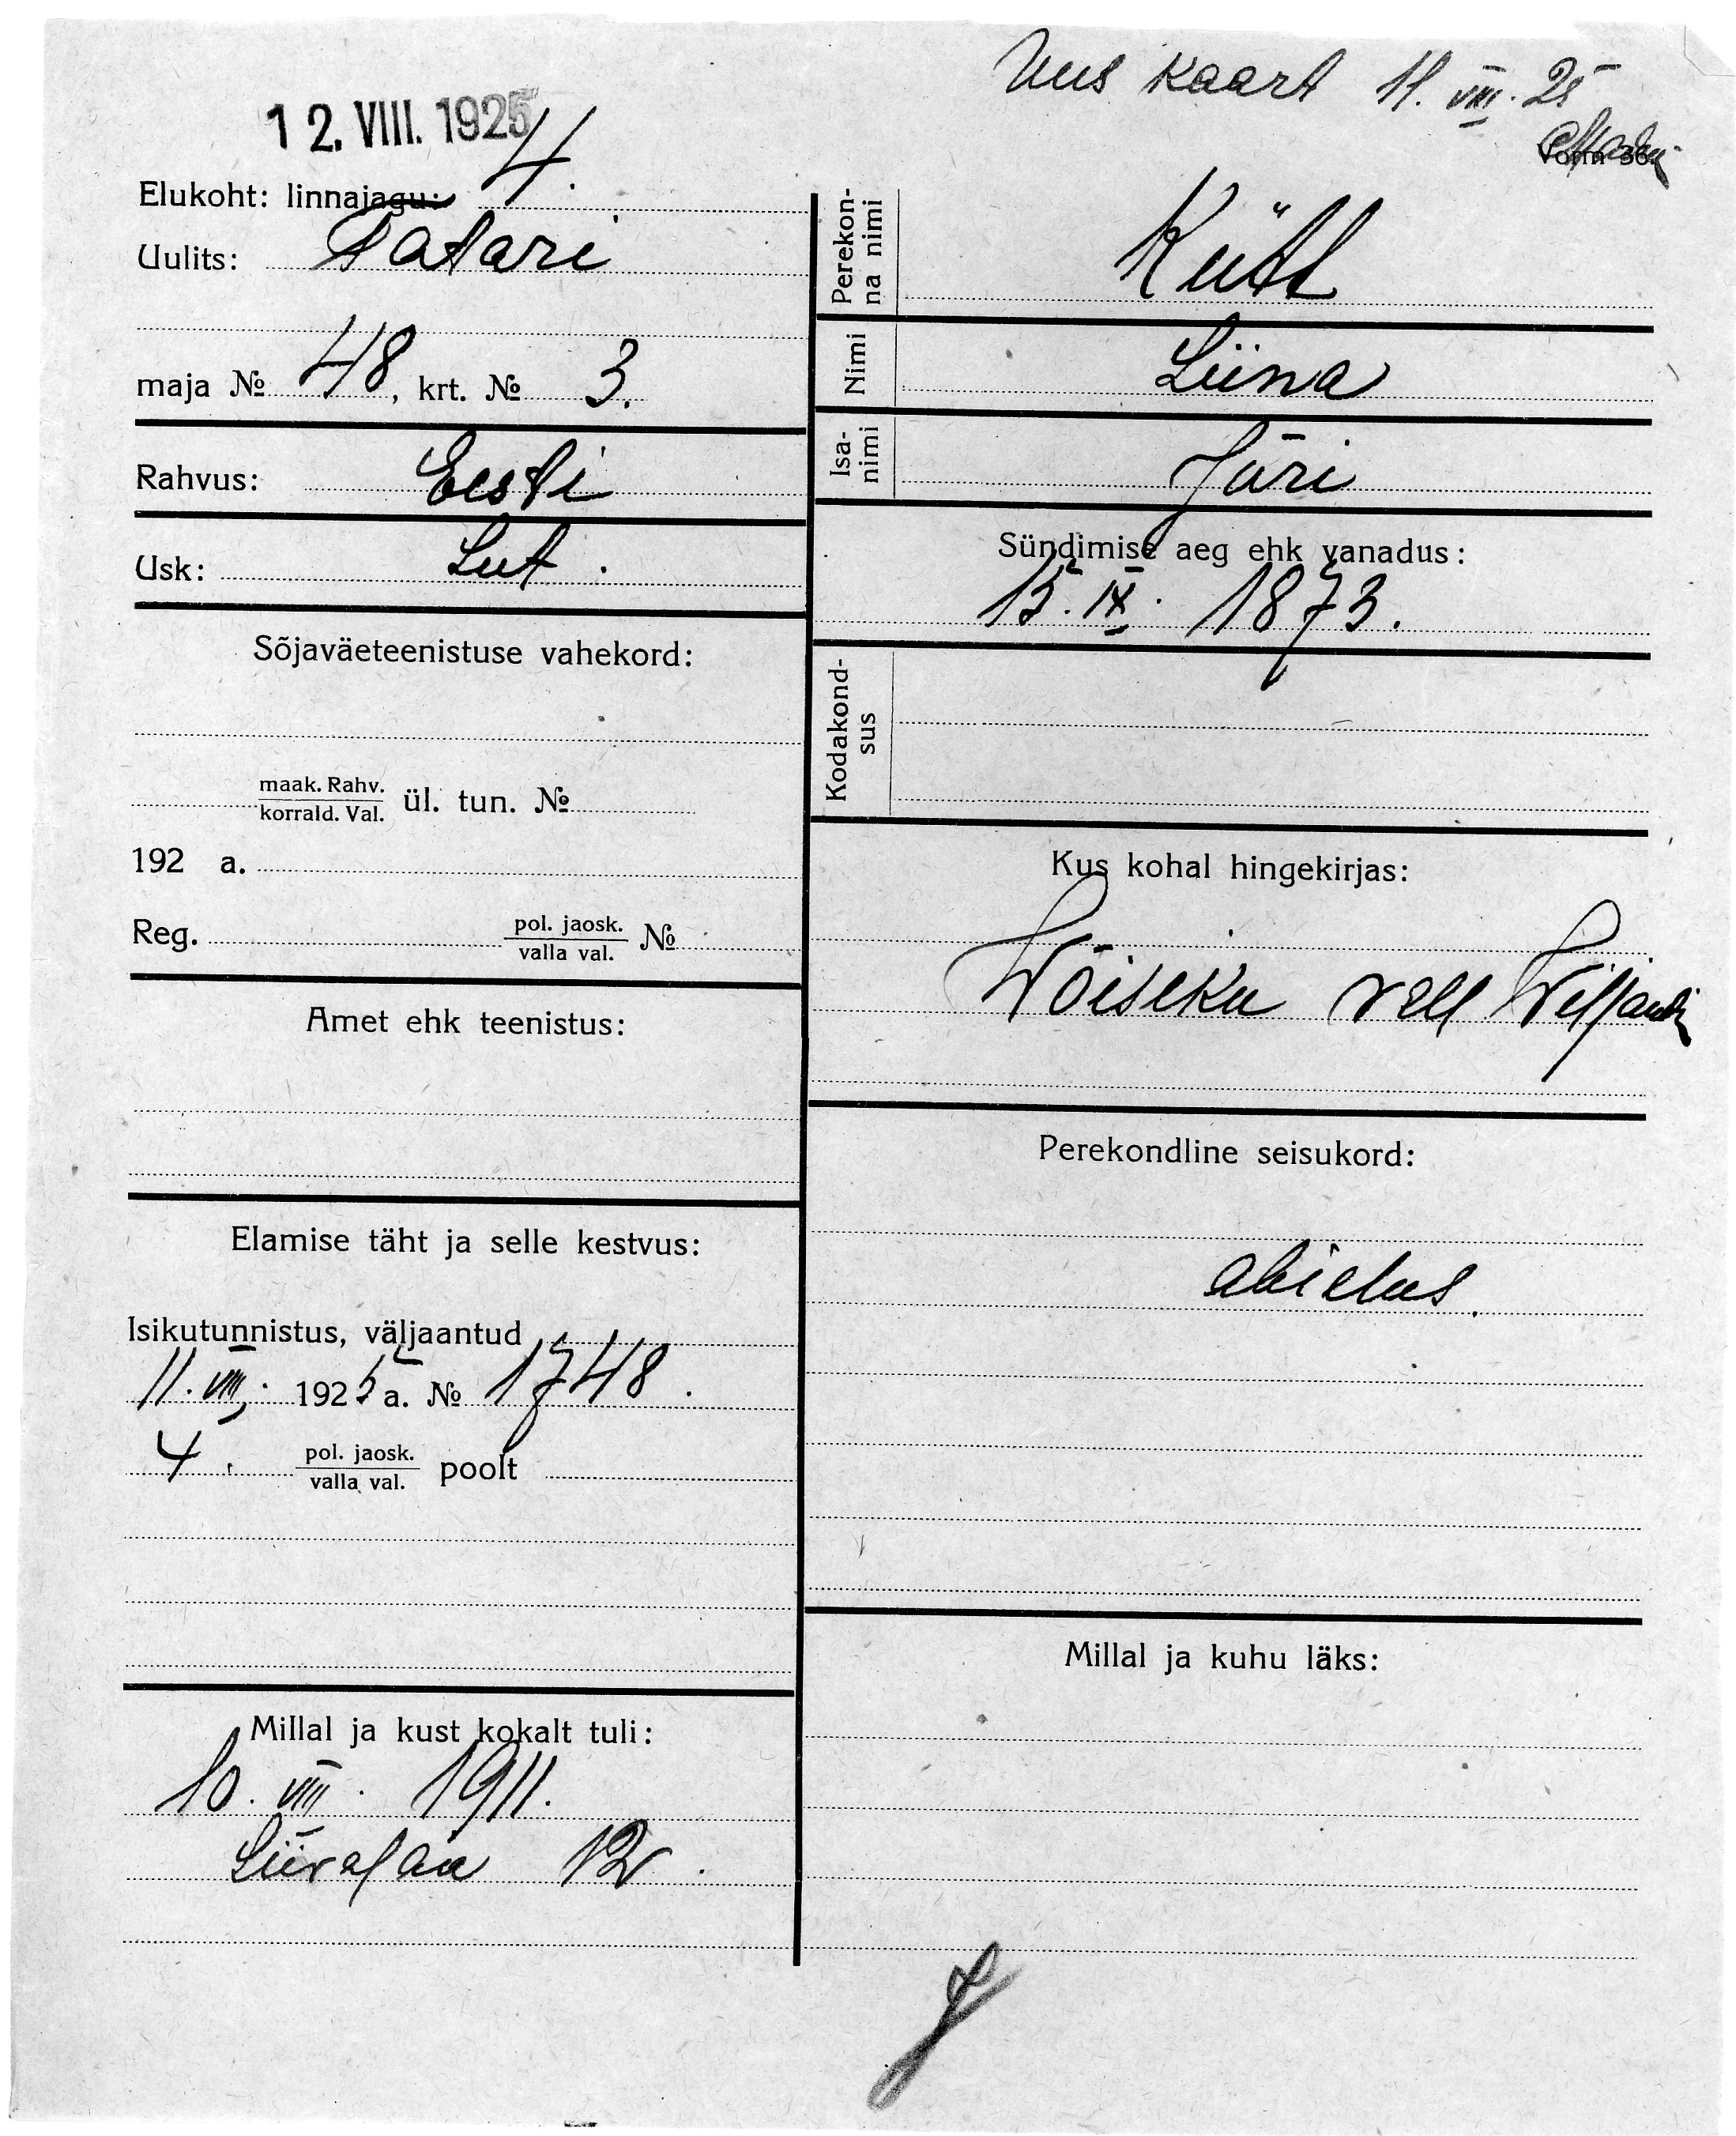 Uus kaart 11. VIII. 25
12. VIII. 1925
Vorm 36.
Elukoht: linnajagu: 4.
Uulits: Tatari
maja № 48, krt. № 3.
Rahvus: Eesti
Usk: Lut.
Sõjaväeteenistuse vahekord:
maak. Rahv.
korrald. Val. ül. tun. №
192 a.
Reg. pol. jaosk.
valla val. №
Amet ehk teenistus:
Elamise täht ja selle kestvus:
Isikutunnistus, väljaantud
11. VIII. 1925 a. № 1748.
4. pol. jaosk.
valla val. poolt
Millal ja kust kokalt tuli:
10. VIII. 1911.
12.
Perekon-
na nimi Kütt
Nimi Liina
Isa-
nimi Jüri
Sündimise aeg ehk vanadus:
15. IX. 1873.
Kodakond-
sus
Kus kohal hingekirjas:
Wõiseku vall Wiljandi
Perekondline seisukord:
abielus.
Millal ja kuhu läks: